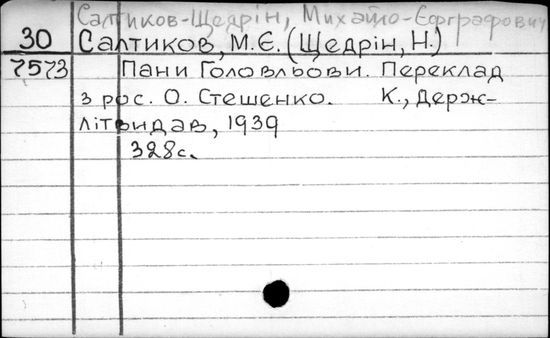 Салтиков-Щедрін, Михайло Євграфович
30 Салтиков, М.Є. (Щедрін, Н.)
7573 Пани Головльови. Переклад
з рос. О. Стешенко. К., Держ-
літвидав, 1939
328с.